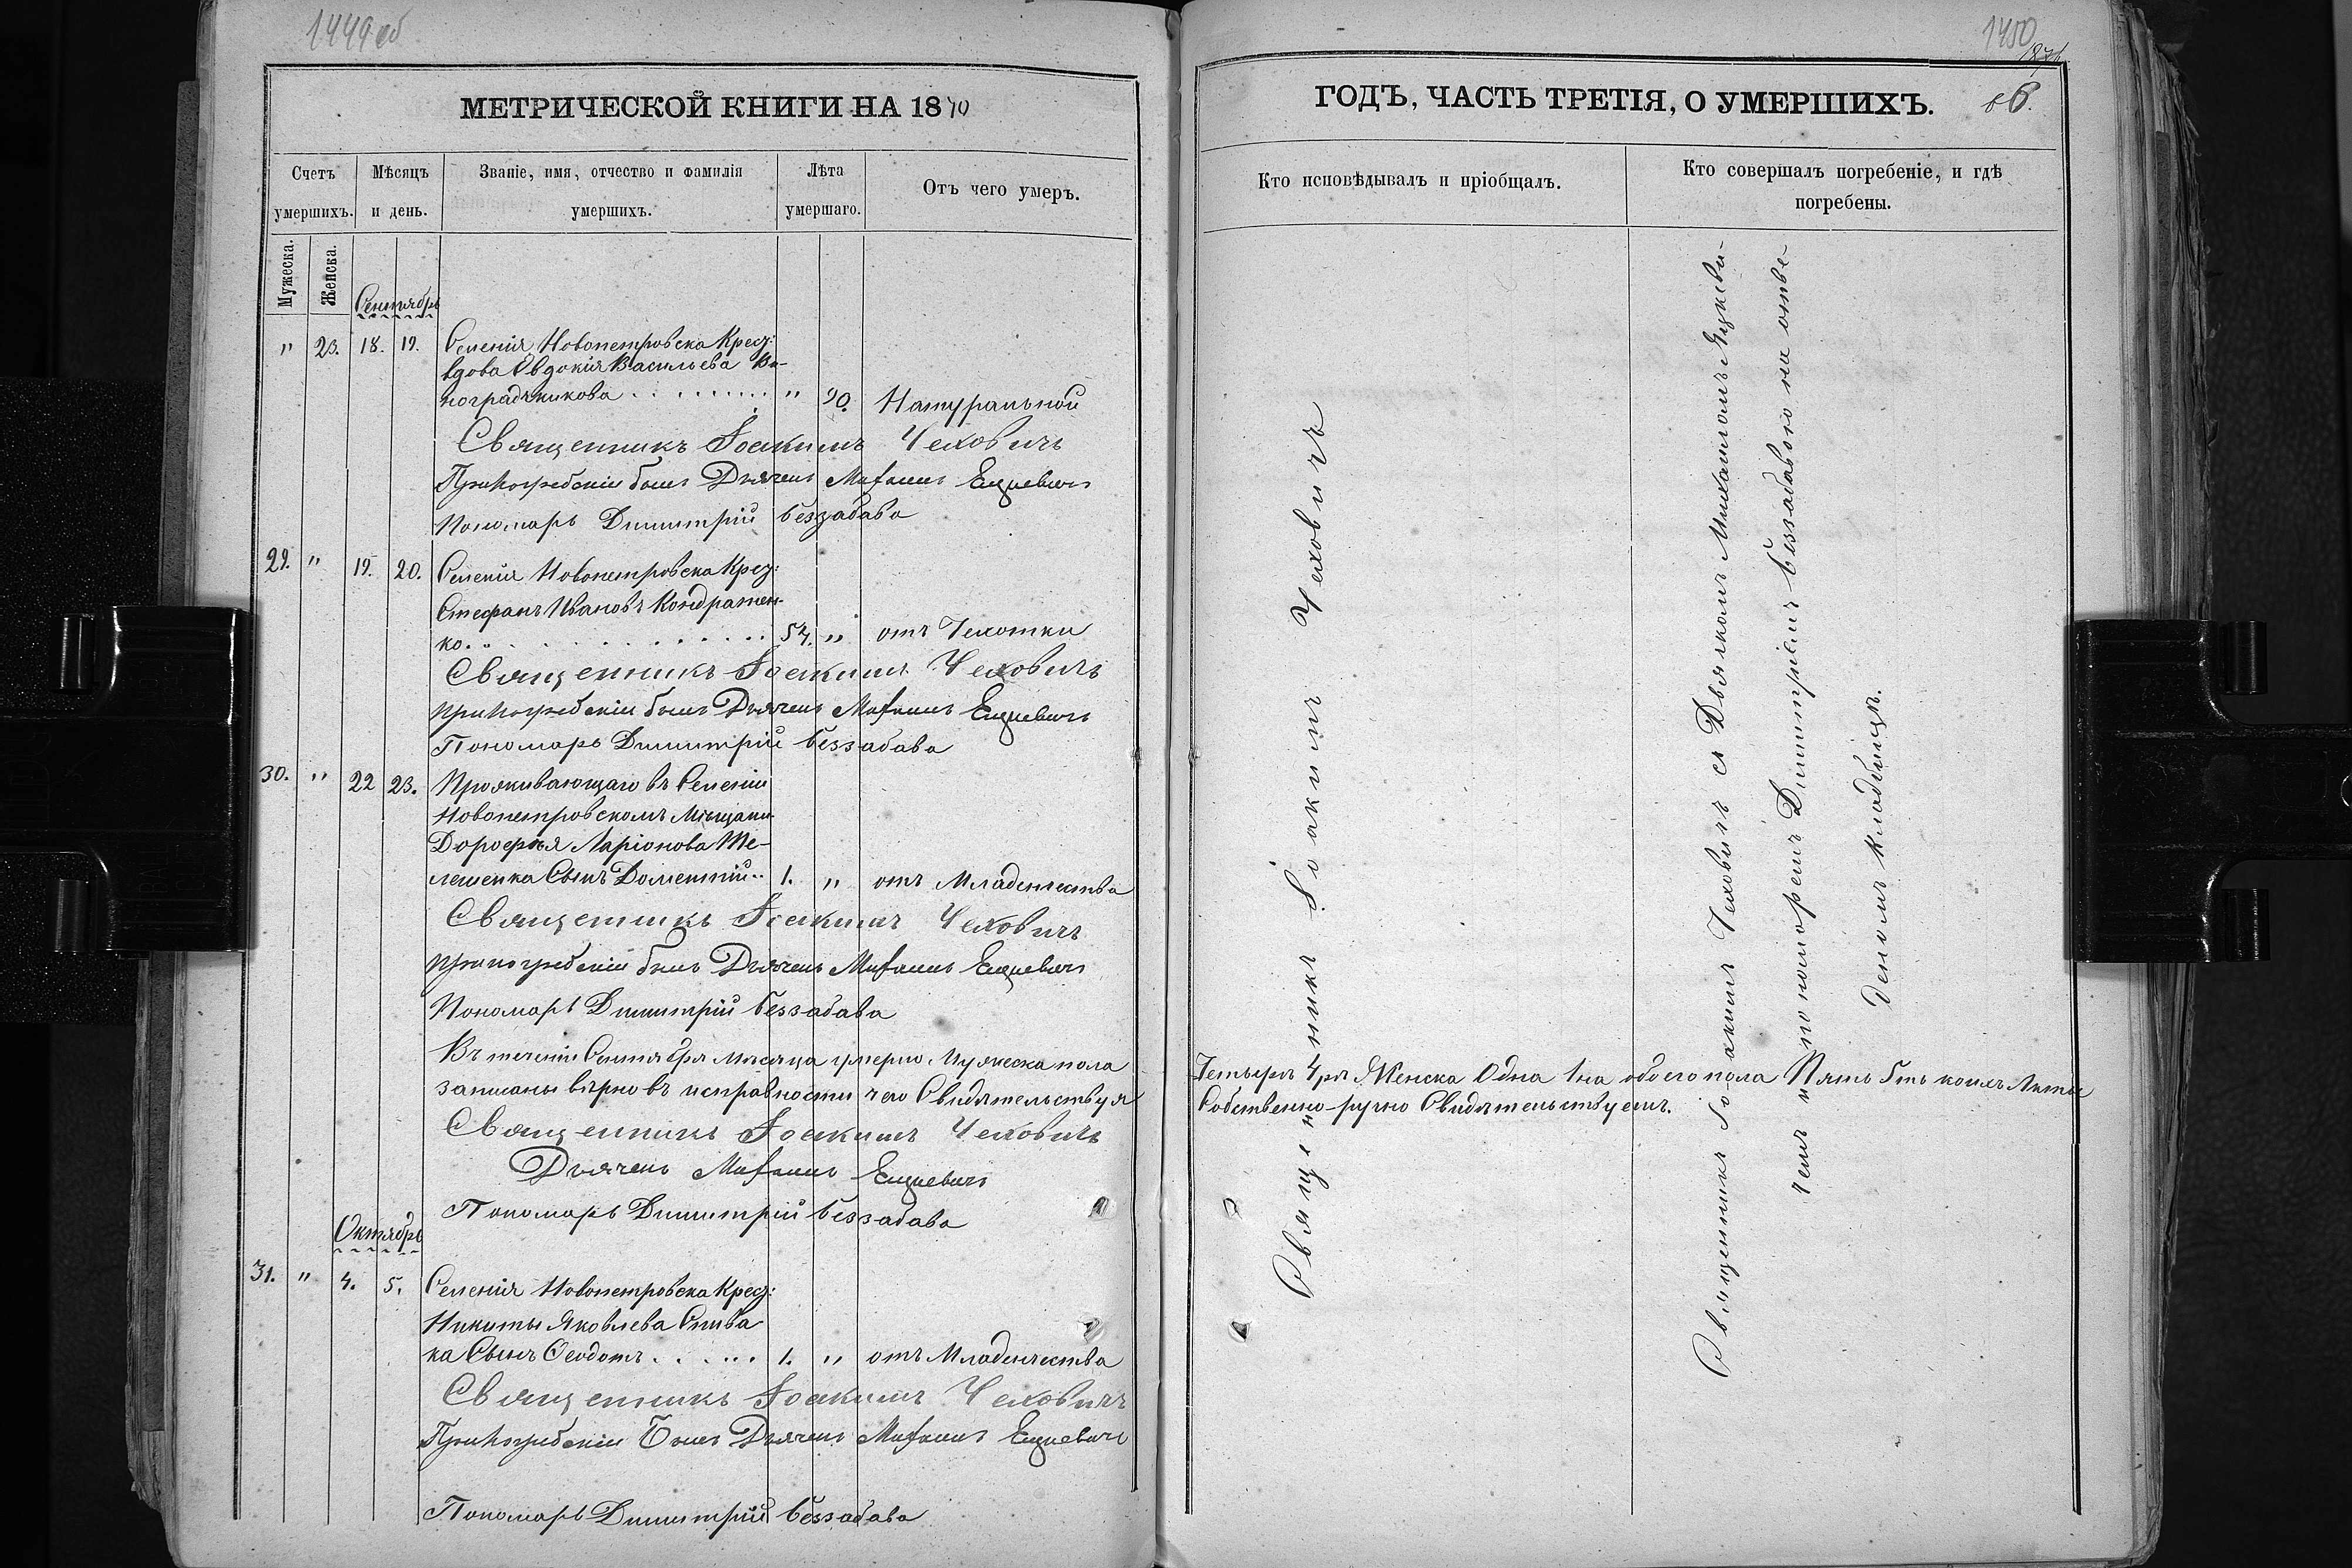 1449 об
МЕТРИЧЕСКОЙ КНИГИ НА 1870
Счетъ умершихъ.
Мѣсяцъ и день.
Званіе, имя, отчество и фамилія умершихъ.
Лѣта умершаго.
Отъ чего умеръ.
Мужеска.
Женска.
Сентябрь
" 23. 18. 19. Селенія Новопетровска Крес:
вдова Евдокія Васильева Ви-
ноградникова . . . . . . . . . " 90. Натуральной
Священникъ Іоакимъ Чеховичъ
При погребеніи былъ Дьячекъ Михаилъ Ецкевичъ
Пономарь Димитрій Беззабава
29. " 19. 20. Селенія Новопетровска Крес:
Стефанъ Ивановъ Кондратен-
ко. . . . . . . . . . . . . . 54. " отъ Чехотки
Священникъ Іоакимъ Чеховичъ
При погребеніи былъ Дьячекъ Михаилъ Ецкевичъ
Пономарь Димитрій Беззабава
30. " 22 23. Проживающаго въ Селеніи
Новопетровскомъ Мещани-
Дорофея Ларіонова Те-
лешенка Сынъ Дометій.. 1. " отъ Младенчества
Священникъ Іоакимъ Чеховичъ
При погребеніи былъ Дьячекъ Михаилъ Ецкевичъ
Пономарь Димитрій Беззабава
Въ теченіи Сентября Месяца умерло Мужеска пола
записаны верно въ исправности чего Свидетельствуя
Священникъ Іоакимъ Чеховичъ
Дьячекъ Михаилъ Ецкевичъ
Пономарь Димитрій Беззабава
Октябрь
31. " 4. 5. Селенія Новопетровска Крес:
Никиты Яковлева Спива
ка Сынъ Феодотъ . . . . . . 1. " отъ Младенчества
Священникъ Іоакимъ Чеховичъ
При погребеніи Былъ Дьячекъ Михаилъ Ецкевичъ
Пономарь Димитрій Беззабава
1450
ГОДЪ, ЧАСТЬ ТРЕТІЯ, О УМЕРШИХЪ.
Кто исповѣдывалъ и пріобщалъ.
Кто совершалъ погребеніе, и гдѣ
погребены.
Священникъ Іоакимъ Чеховичъ
Священникъ Іоакимъ Чеховичъ съ Дьячкомъ Михаиломъ Яцкеви-
чемъ и пономоремъ Димитріемъ Беззабавою на отве-
деномъ кладбищѣ.
Четыре 4ре Женска Одна 1на обоего пола Пять 5ть коихъ Акты
Собственно-ручно Свидетельствуемъ.